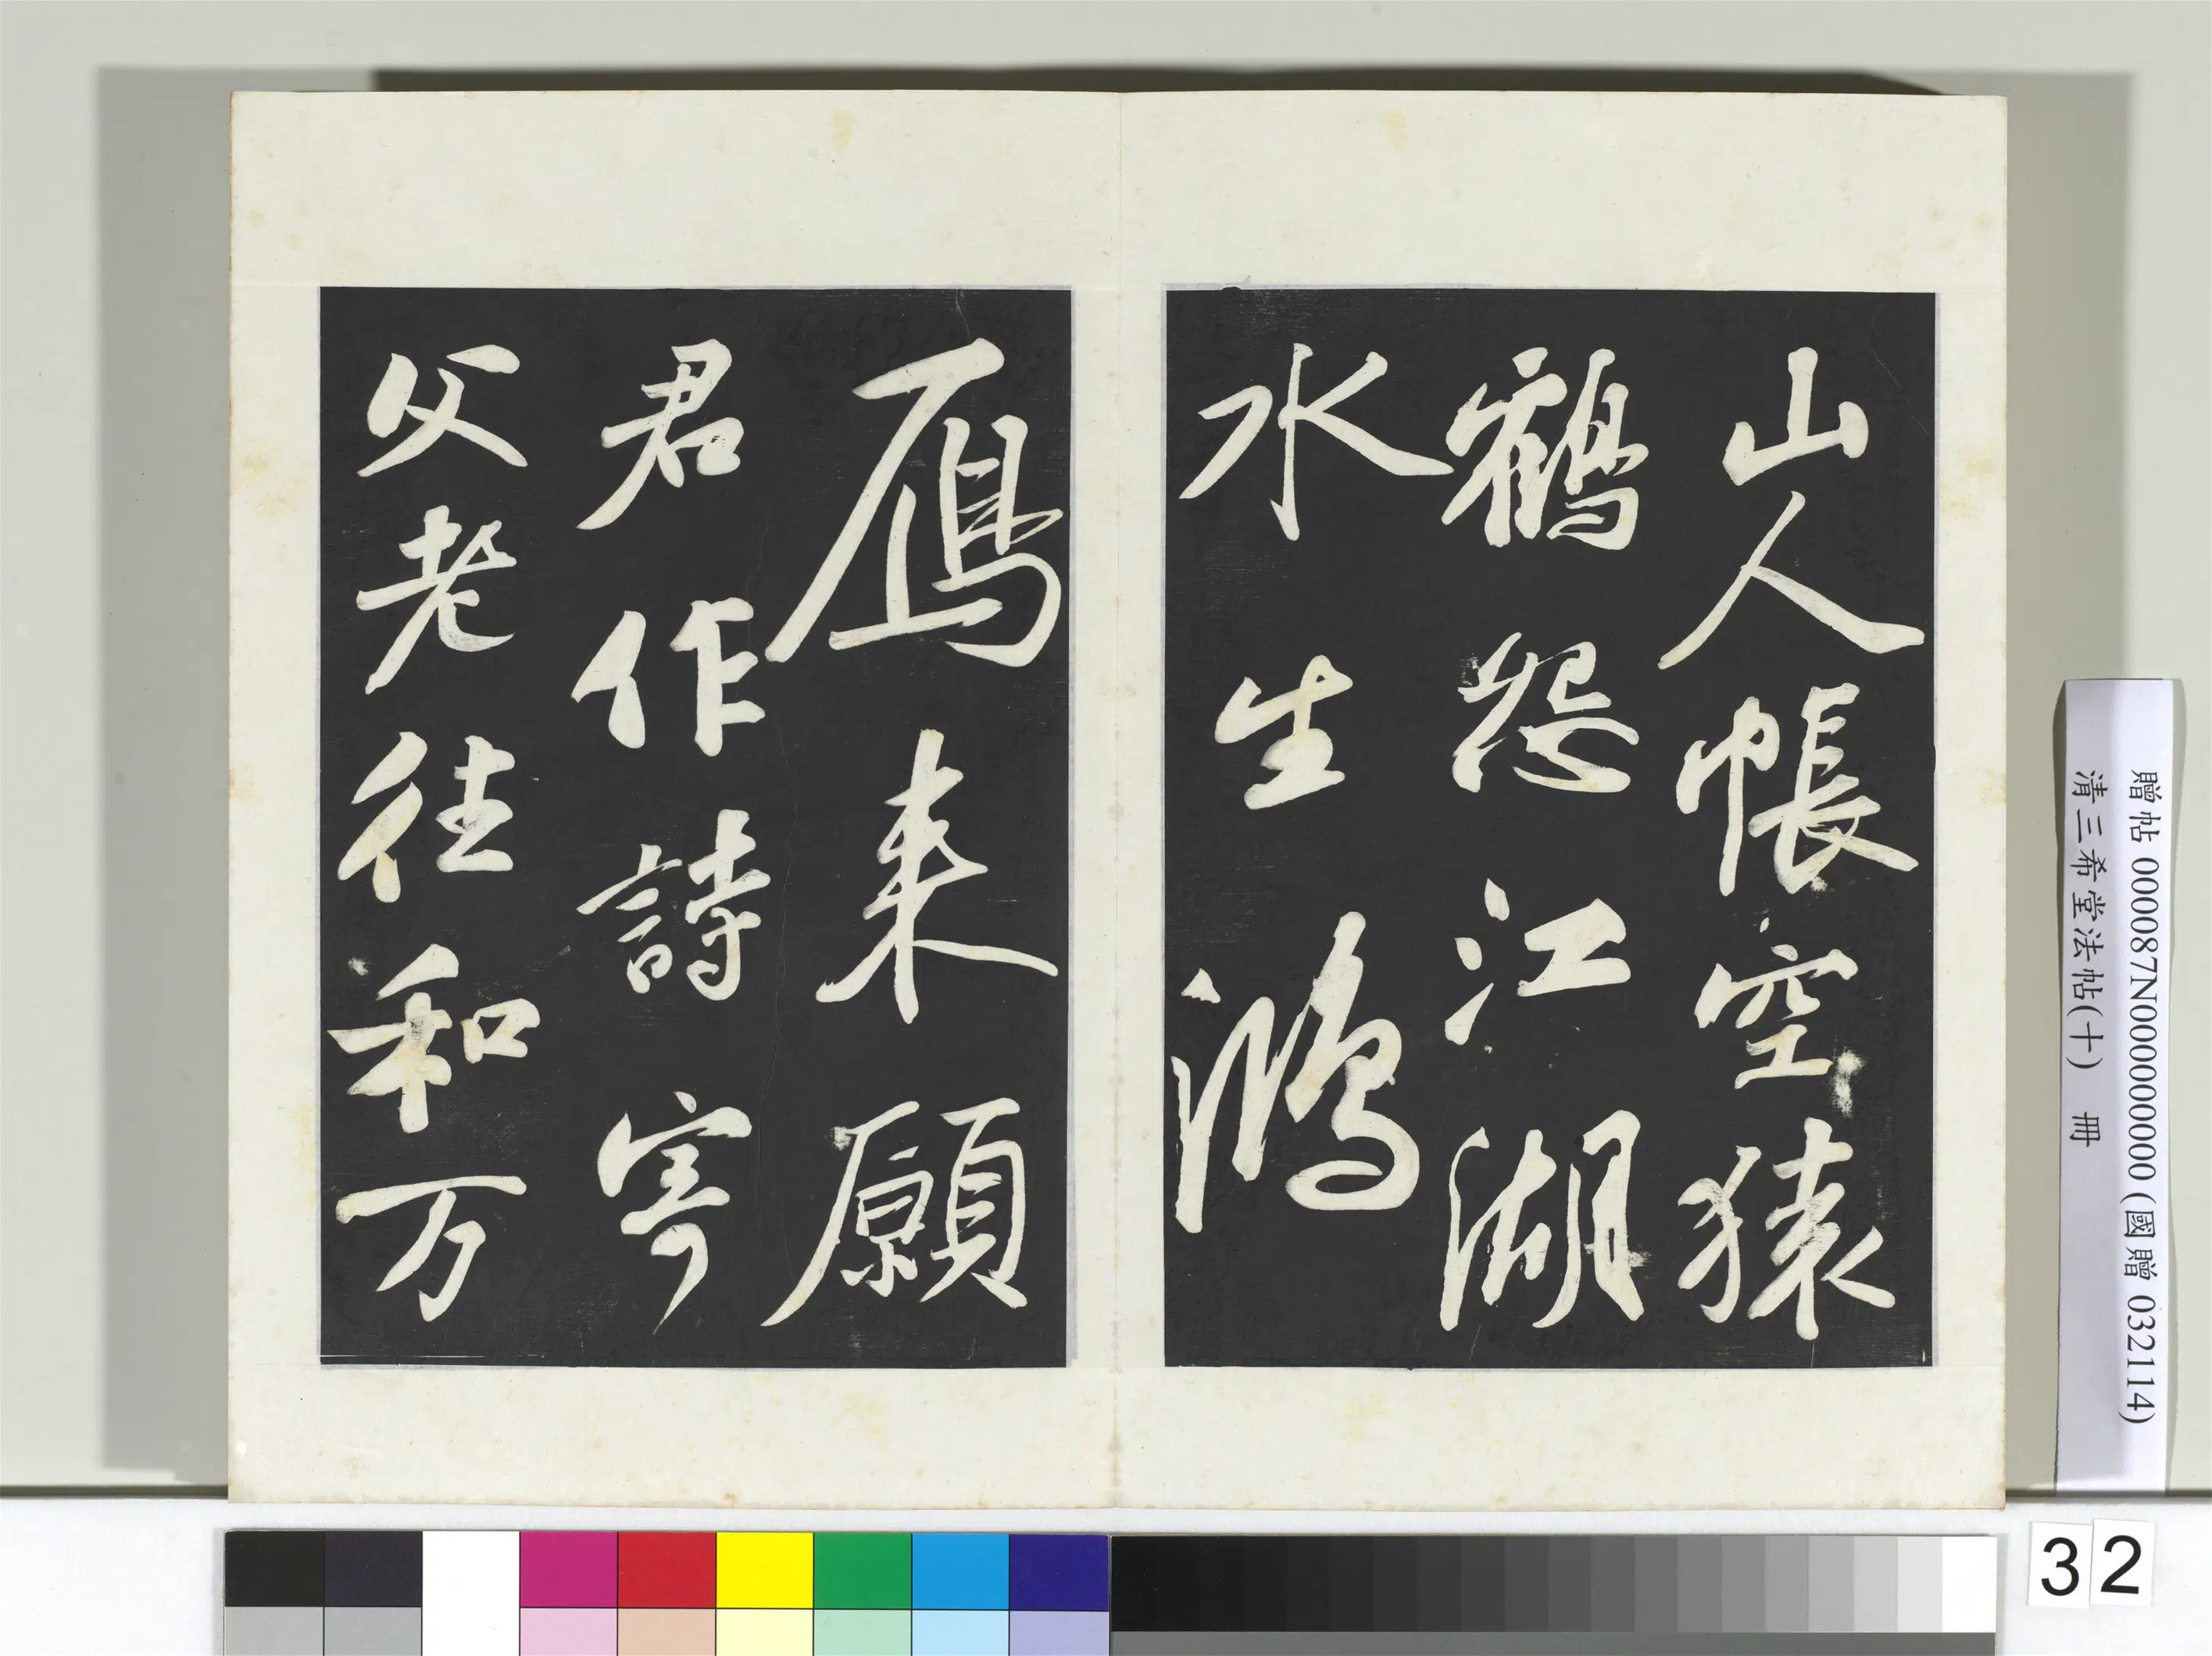 山人帳空猿
鶴怨江湖
水生鴻
鴈来願
君作詩寄
父老往和万
贈帖 000087N000000000 (國贈 032114)
清三希堂法帖(十) 冊
32